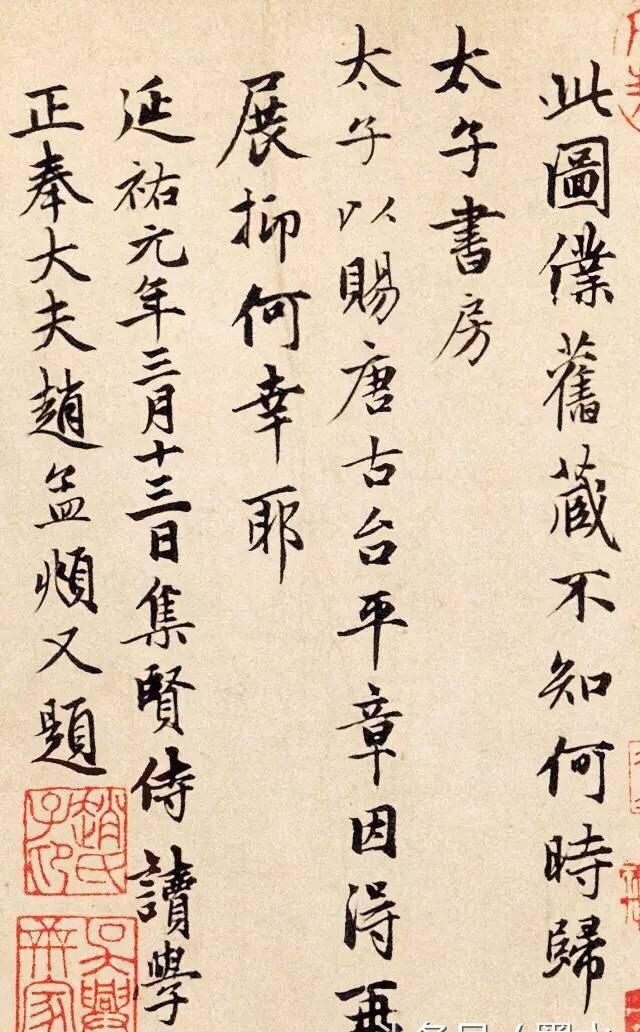 此圖僕舊藏不知何時歸
太子書房
太子以賜唐古台平章因得再
展抑何幸耶
延祐元年三月十三日集賢侍讀學
正奉大夫趙孟頫又題
趙氏子昂